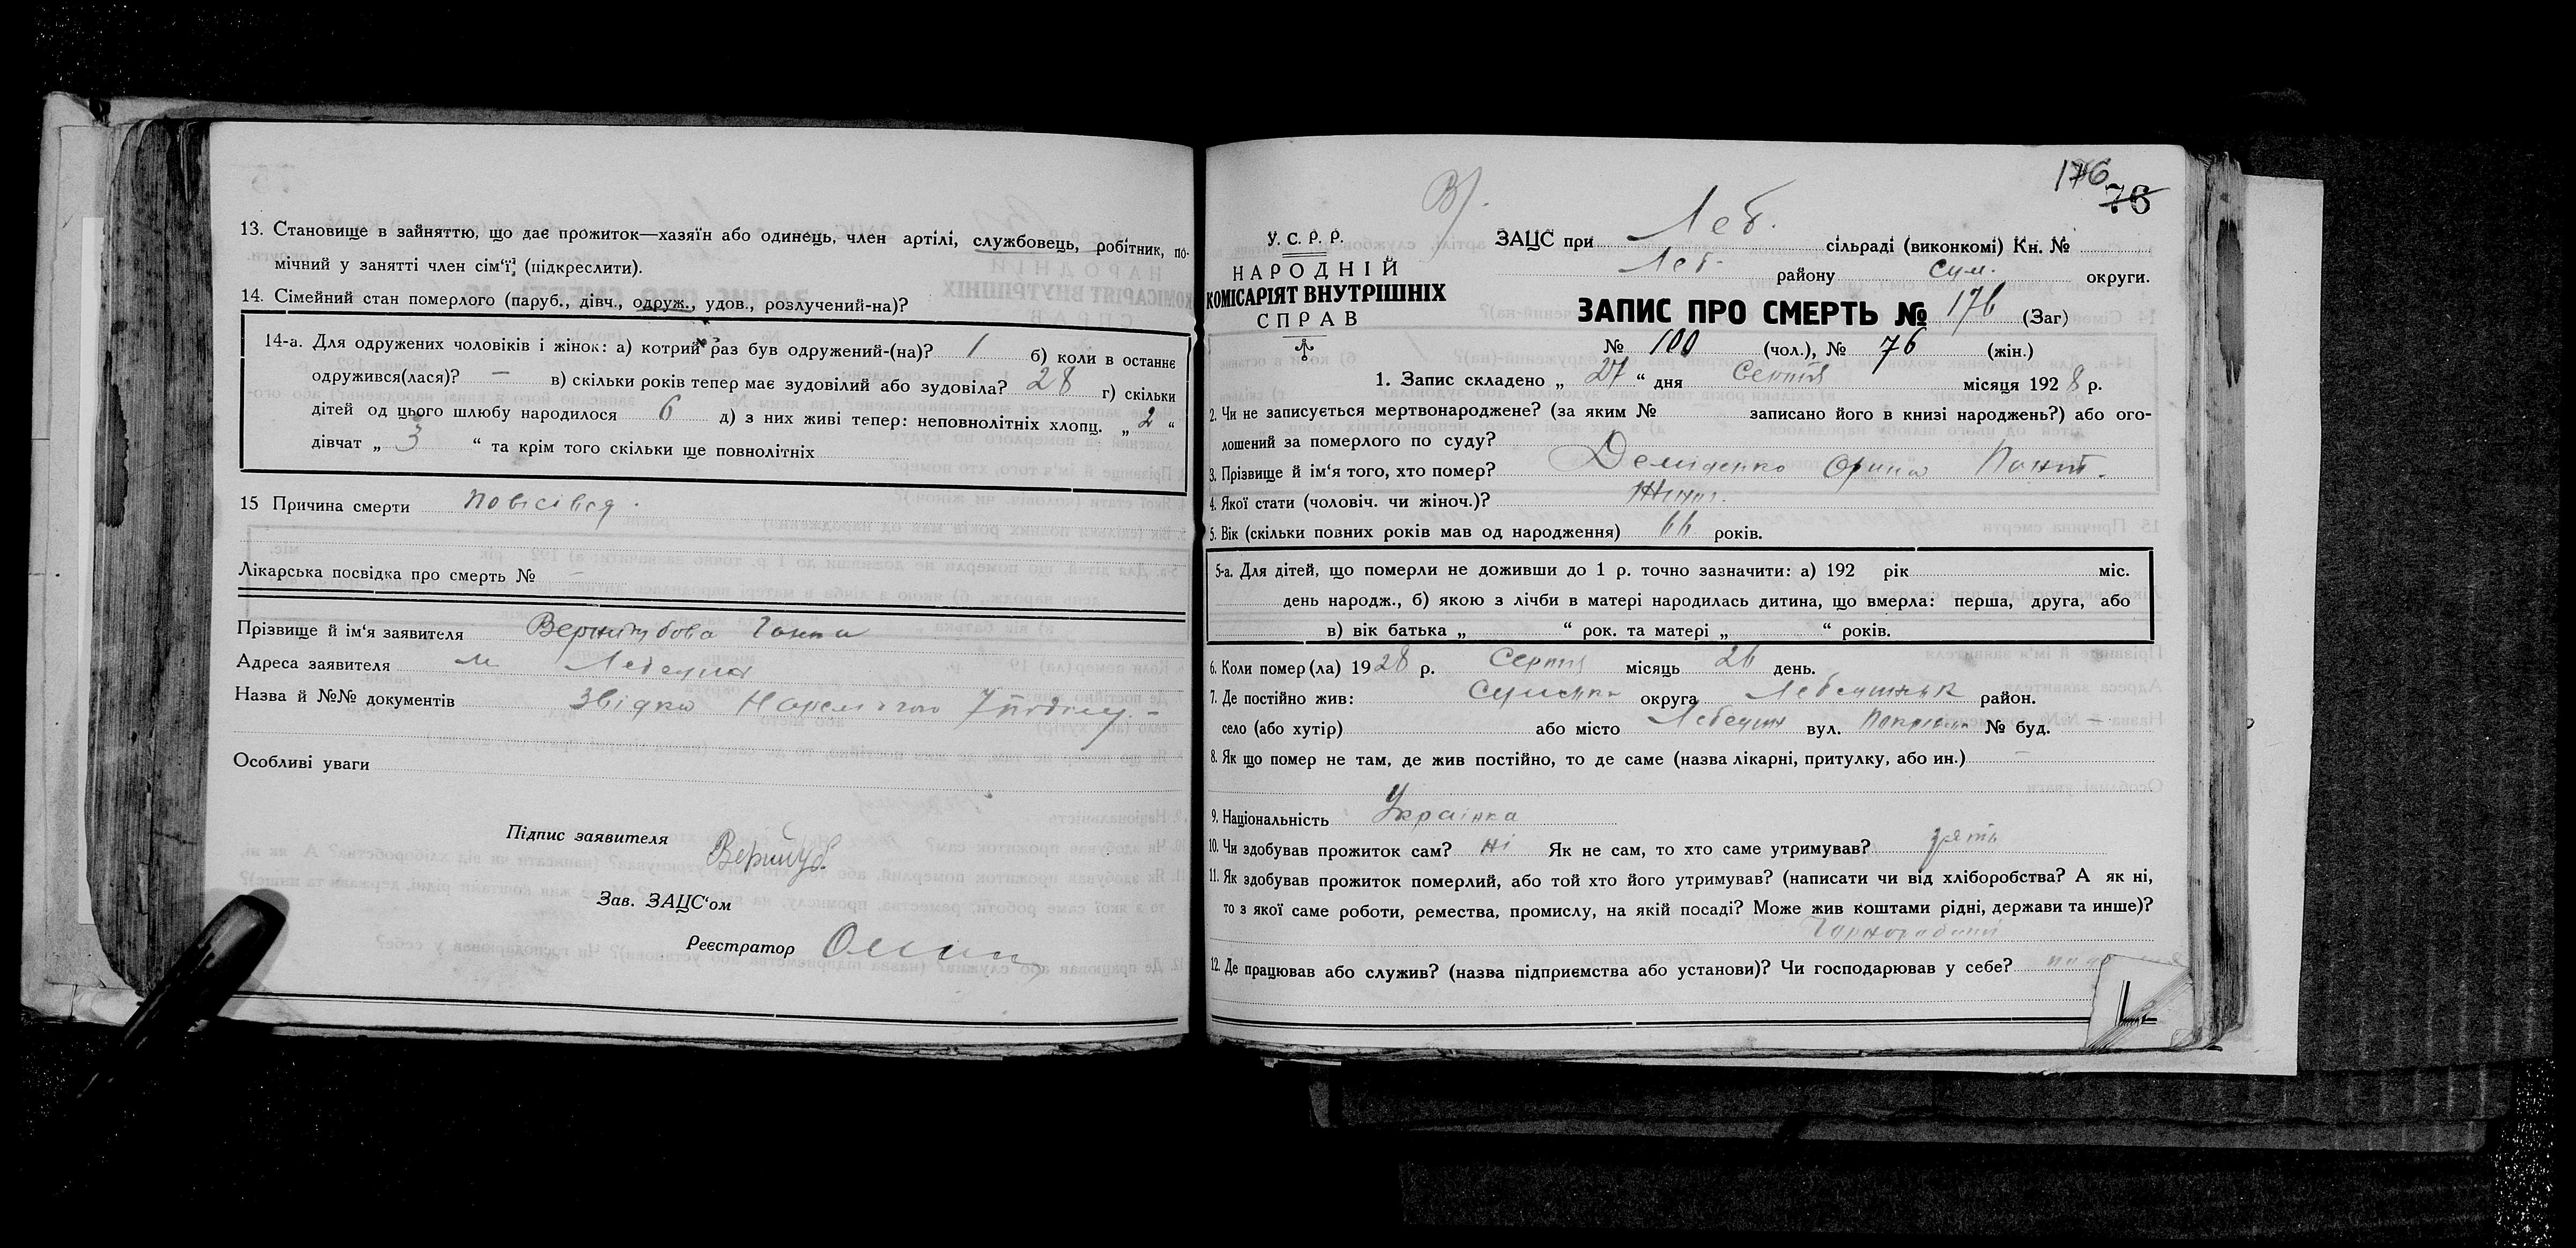 13. Становище в зайняттю, що дає прожиток—хазяїн або одинець, член артілі, службовець, робітник, по-
мічний у занятті член сім'ї, (підкреслити).
14. Сімейний стан померлого (паруб., дівч., одруж., удов., розлучений-на)?
14-а. Для одружених чоловіків і жінок: а) котрий раз був одружений-(на)? 1 б) коли в останнє
одружився(лася)? — в) скільки років тепер має зудовілий або зудовіла? 28 г) скільки
дітей од цього шлюбу народилося 6 д) з них живі тепер: неповнолітніх хлопц. „ 2 “
дівчат „ 3 “ та крім того скільки ще повнолітніх
15 Причина смерти повісівся.
Лікарська посвідка про смерть № —
Прізвище й ім'я заявителя Ганна
Адреса заявителя м Лебедин
Назва й №№ документів Звідка
Особливі уваги
Підпис заявителя
Зав. ЗАЦС'ом
Реєстратор
176
76
В).
У. С. Р. Р.
НАРОДНІЙ
КОМІСАРІЯТ ВНУТРІШНІХ
СПРАВ
ЗАЦС при Леб. сільраді (виконкомі) Кн. №
Леб. району Сум. округи.
ЗАПИС ПРО СМЕРТЬ № 176 (Заг)
№ 100 (чол.), № 76 (жін.)
1. Запис складено „ 27 “ дня Серпня місяця 1928 р.
2. Чи не записується мертвонароджене? (за яким № записано його в книзі народжень?) або ого-
лошений за померлого по суду?
3. Прізвище й ім'я того, хто помер? Демиденко Орина Понт.
4. Якої стати (чоловіч. чи жіноч.)? Жіноч.
5. Вік (скільки повних років мав од народження) 66 років.
5-а. Для дітей, що померли не доживши до 1 р. точно зазначити: а) 192 рік міс.
день народж., б) якою з лічби в матері народилась дитина, що вмерла: перша, друга, або
в) вік батька „ “ рок. та матері „ “ років.
6. Коли помер(ла) 1928 р. Серпня місяць 26 день.
7. Де постійно жив: Сумська округа Лебединськ район.
село (або хутір) або місто Лебедин вул. № буд. —
8. Як що помер не там, де жив постійно, то де саме (назва лікарні, притулку, або ин.) —
9. Національність Українка
10. Чи здобував прожиток сам? ні Як не сам, то хто саме утримував? зять
11. Як здобував прожиток померлий, або той хто його утримував? (написати чи від хліборобства? А як ні,
то з якої саме роботи, ремества, промислу, на якій посаді? Може жив коштами рідні, держави та инше)?
Чорноробочий
12. Де працював або служив? (назва підприємства або установи)? Чи господарював у себе?